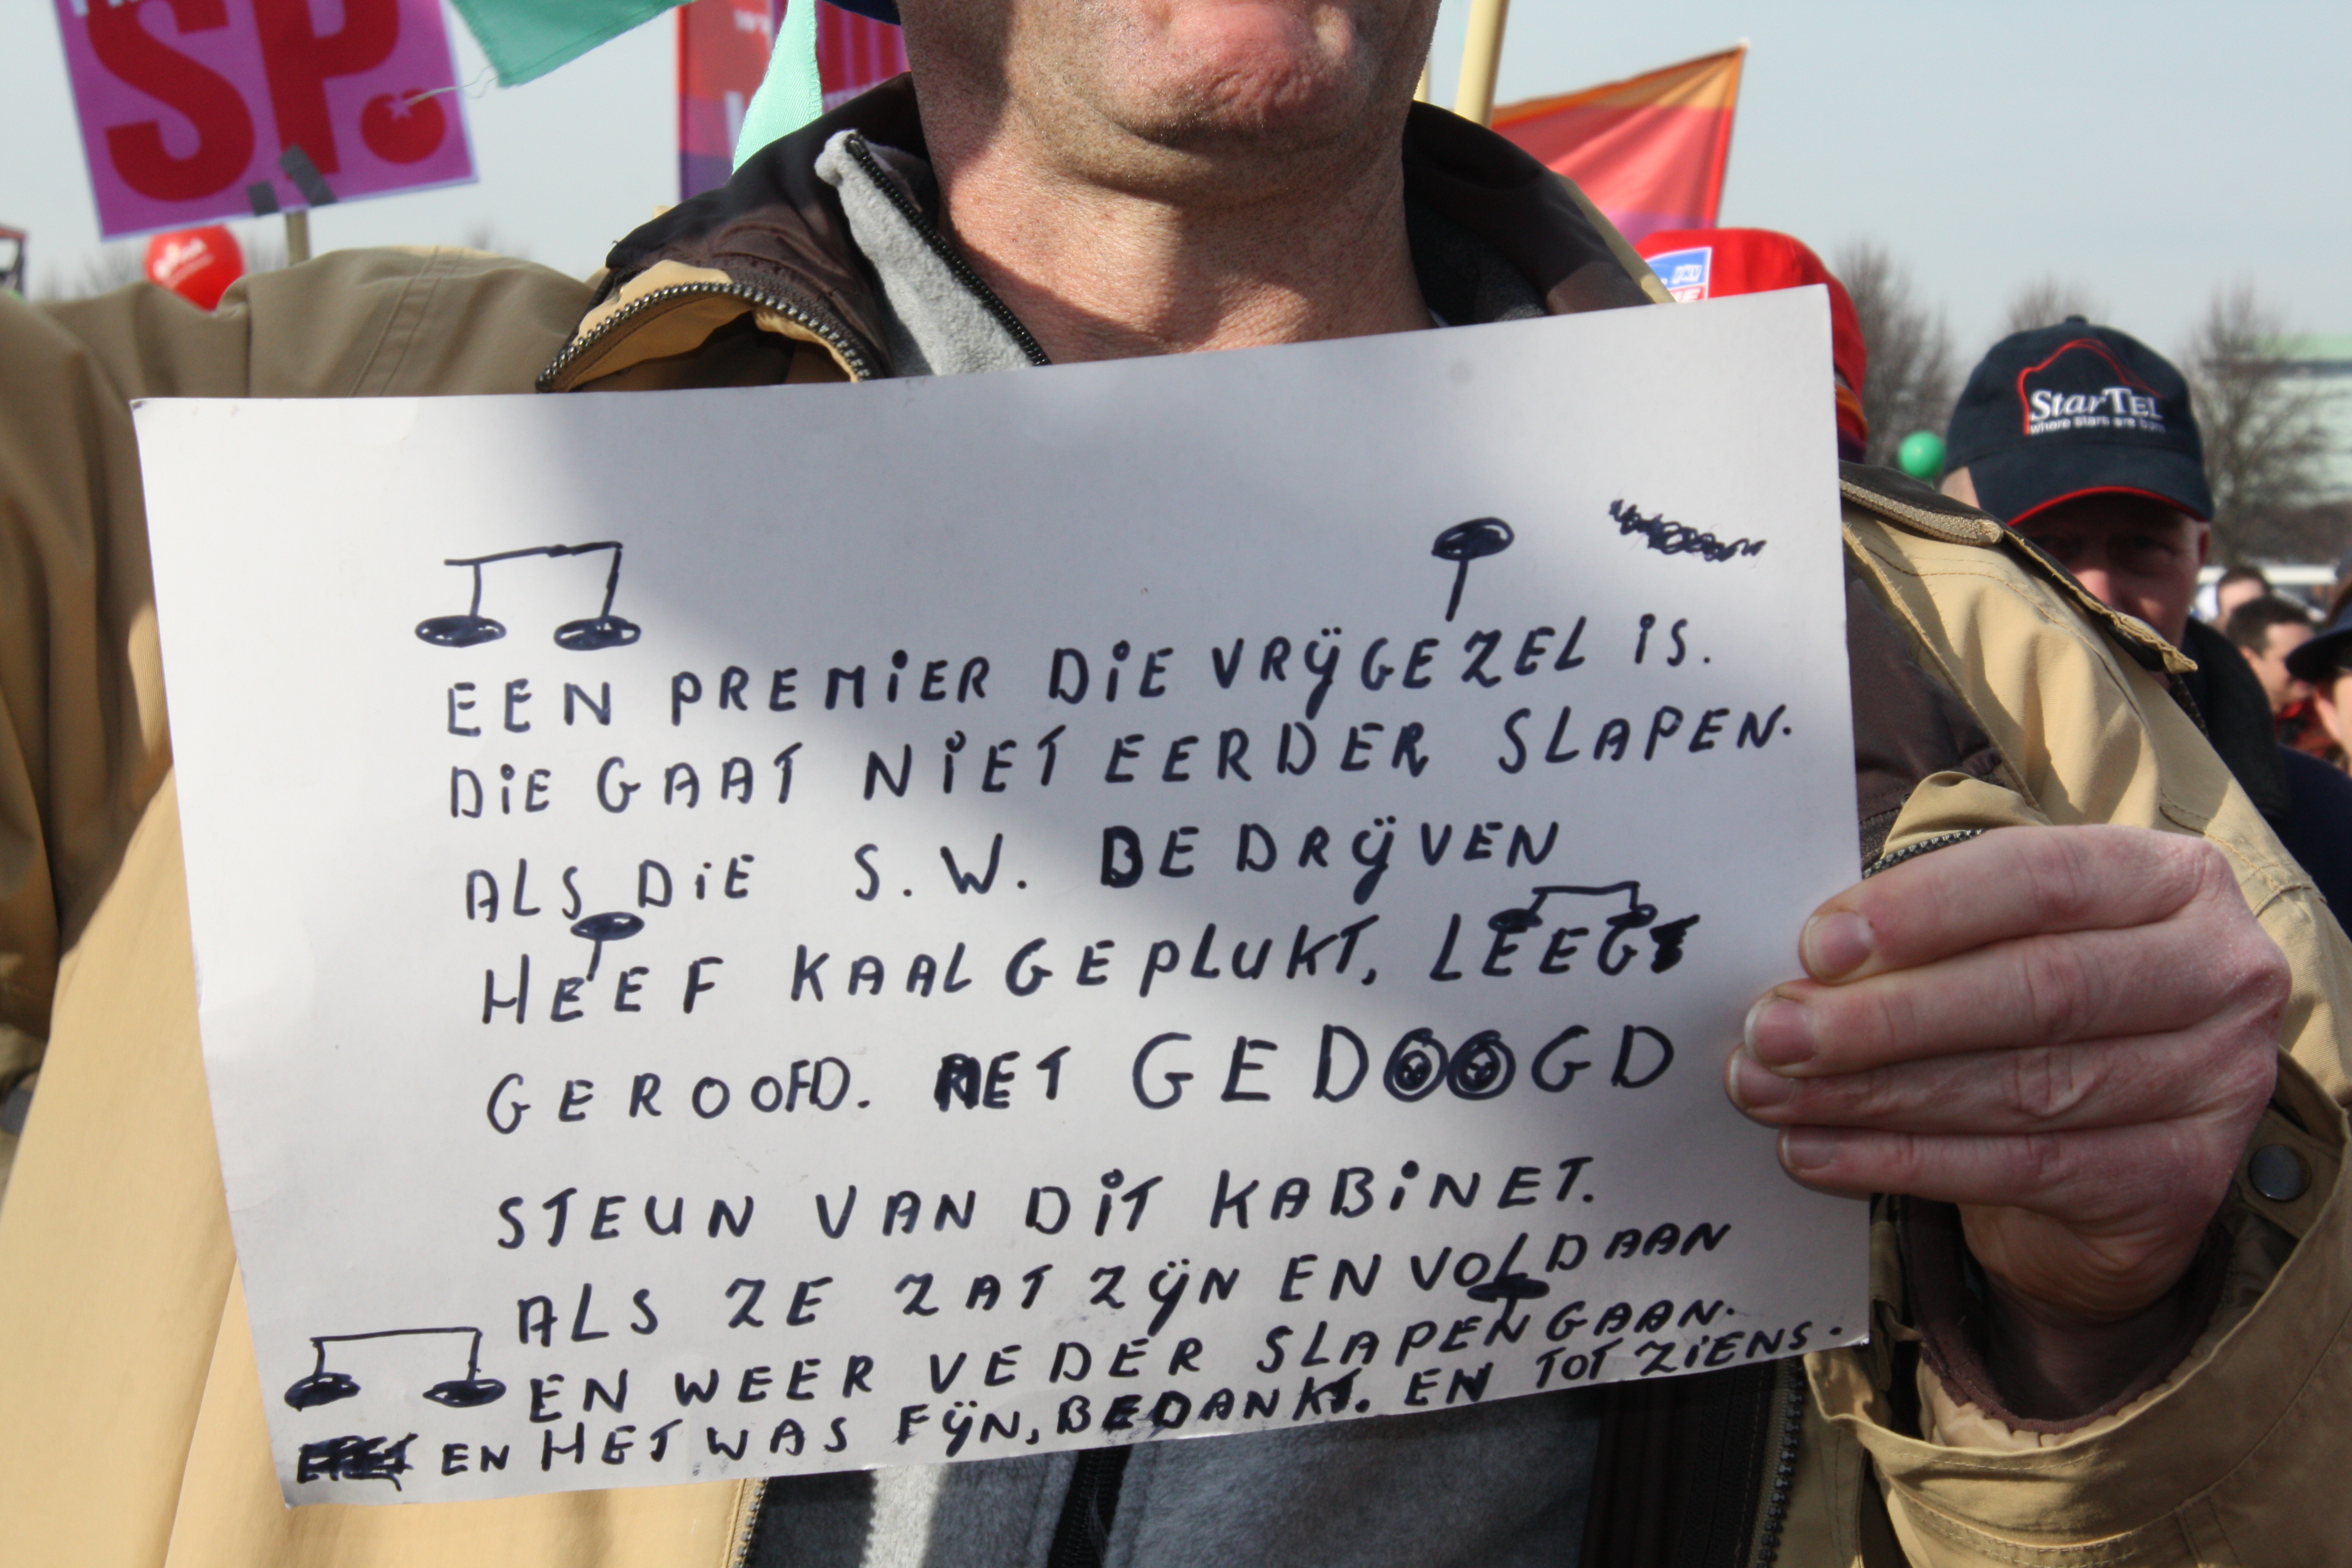 SP.
StarTEL
where stars are born
EEN PREMIER DiE VRIJGEZEL iS.
DiE GAAT NiET EERDER SLAPEN.
ALS DiE S.W. BEDRIJVEN
HEEF KAAL GEPLUKT, LEEG
GEROOFD. MET GEDOOGD
STEUN VAN DiT KABiNET.
ALS ZE ZAT ZIJN EN VOLDAAN
EN WEER VEDER SLAPEN GAAN.
EN HET WAS FIJN, BEDANKT. EN TOT ZiENS.